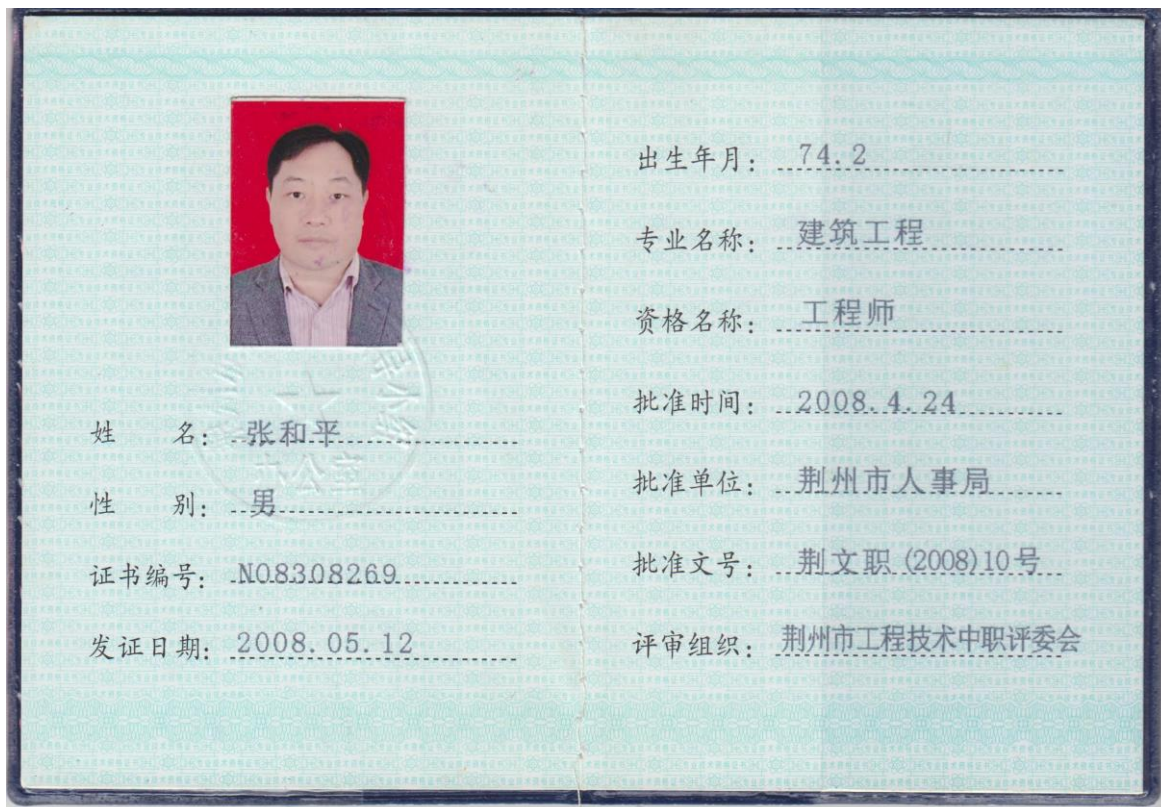 姓 名: 张和平
性 别: 男
证书编号: N08308269
发证日期: 2008.05.12
办公室
出生年月: 74.2
专业名称: 建筑工程
资格名称: 工程师
批准时间: 2008.4.24
批准单位: 荆州市人事局
批准文号: 荆文职(2008)10号
评审组织: 荆州市工程技术中职评委会